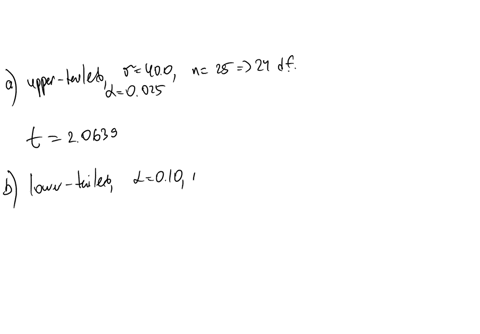 a) upper-tailed, σ=40.0, n=25 => 24 df.
α=0.025
t = 2.0639
b) lower-tailed, α=0.10,